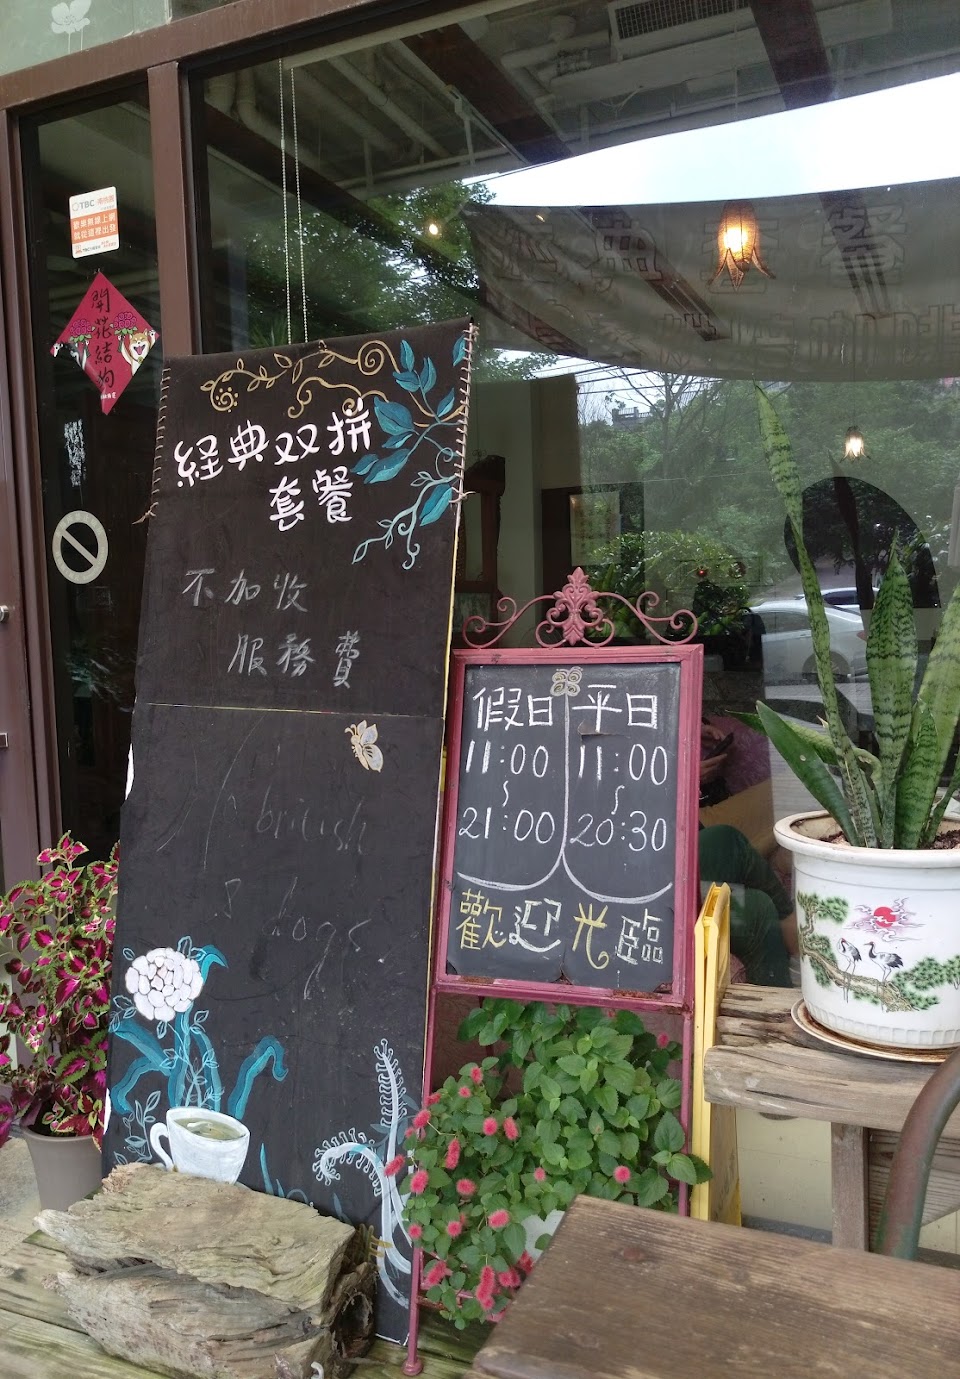 TBC
開花結狗
経典双拼
套餐
不加收
服務費
british
8 dogs
假日
11:00
～
21:00
平日
11:00
～
20:30
歡迎光臨
典套餐
咖啡